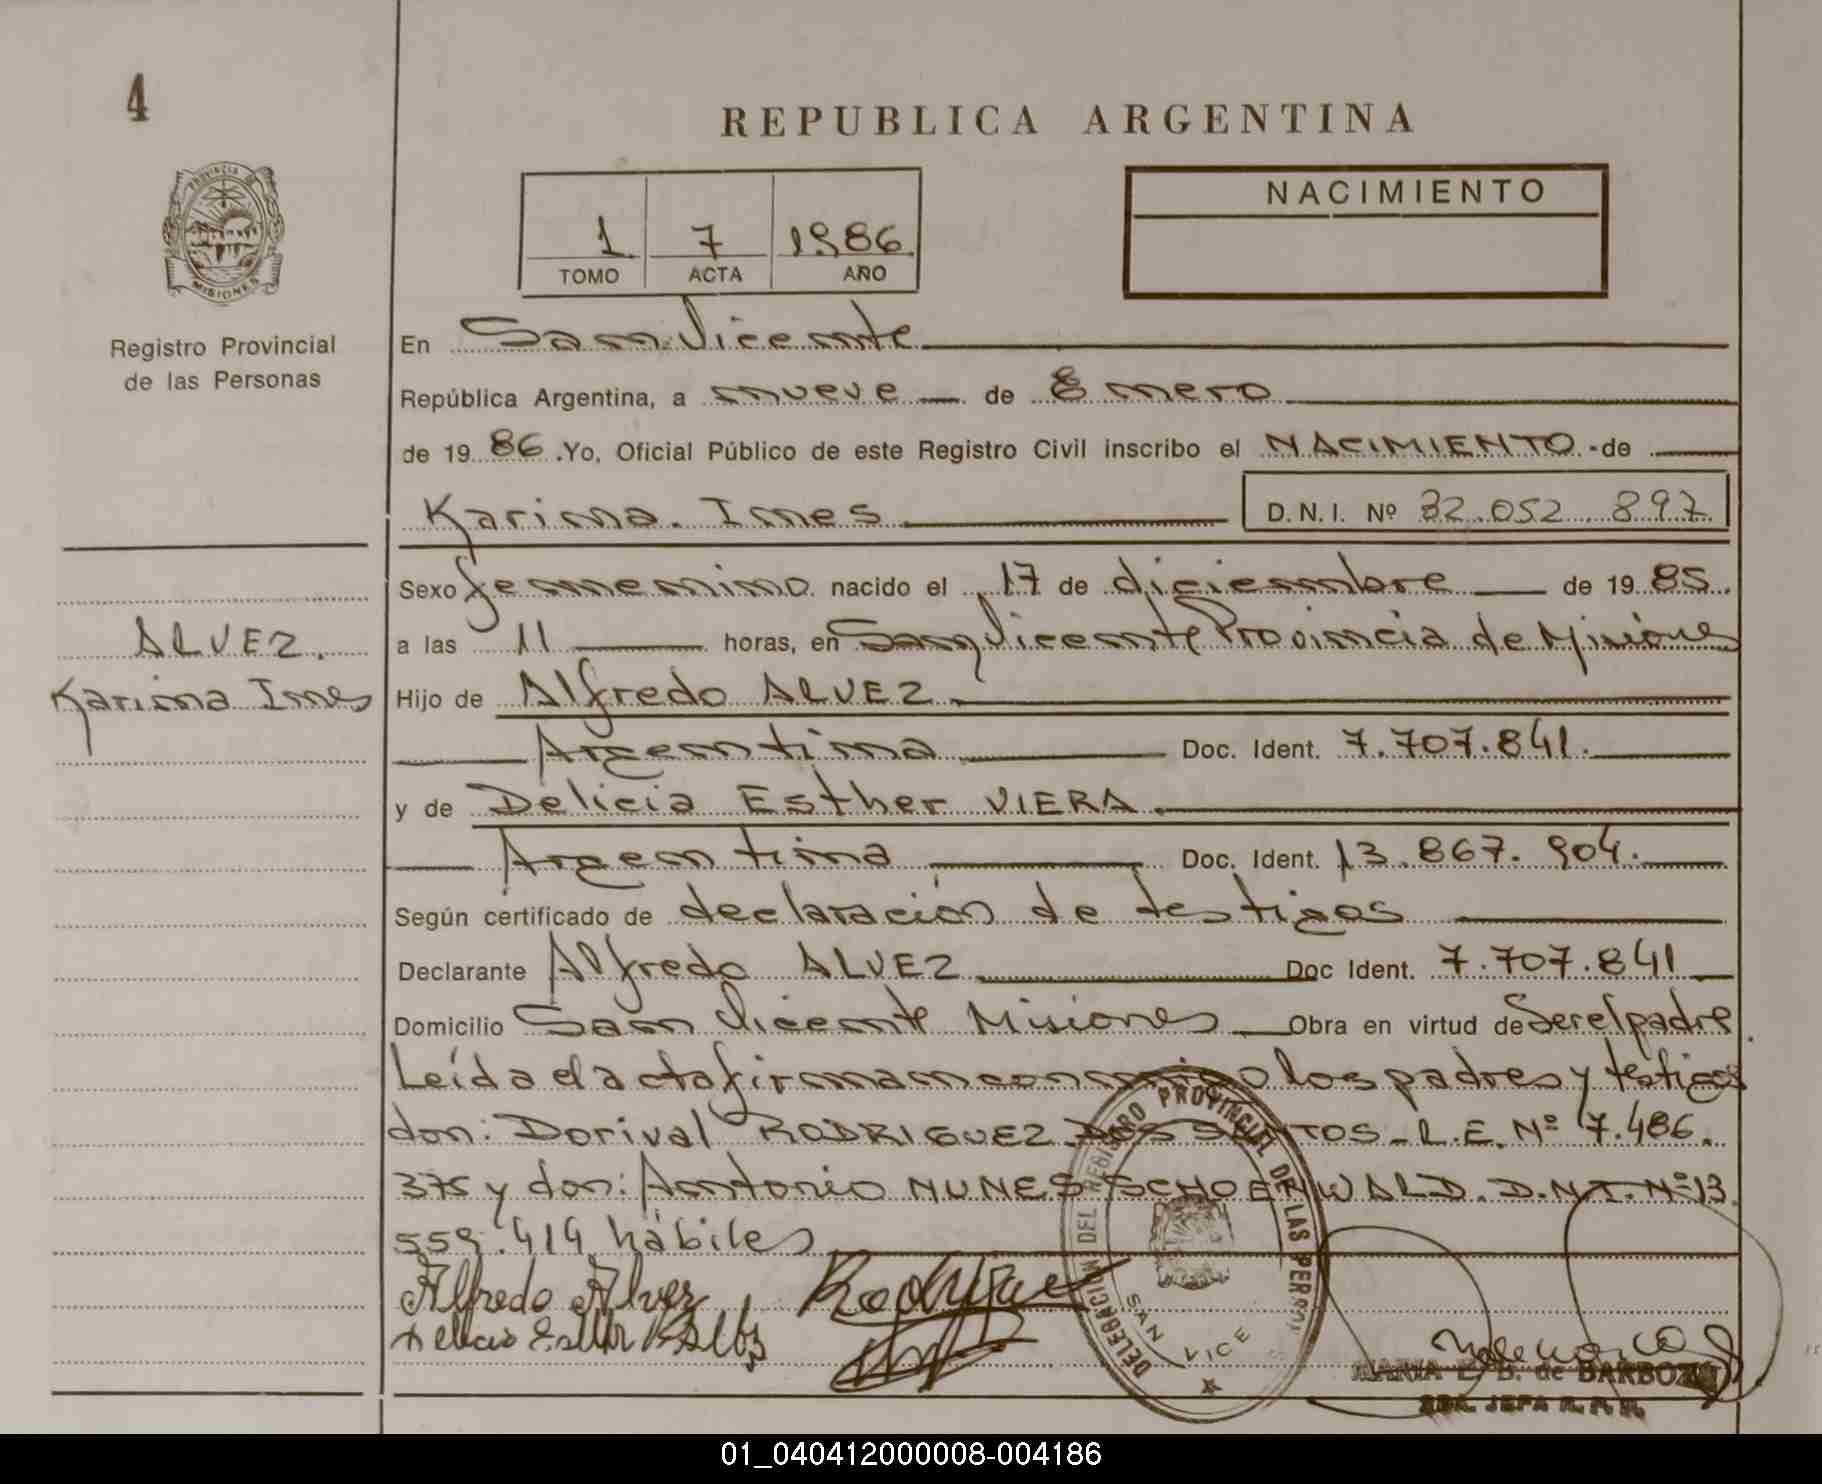 4
REPUBLICA ARGENTINA
PROVINCIA DE
MISIONES
Registro Provincial
de las Personas
1 7 1986
TOMO ACTA AÑO
NACIMIENTO
En San Vicente
República Argentina, a nueve de Enero
de 19 86 .Yo, Oficial Público de este Registro Civil inscribo el NACIMIENTO - de
Karina Ines D.N.I. Nº 32.052.897
Sexo femenino nacido el 17 de diciembre de 19 85.
ALVEZ.
Karina Ines
a las 11 horas, en San Vicente Provincia de Misiones
Hijo de Alfredo ALVEZ
Argentina Doc. Ident. 7.707.841.
y de Delicia Esther VIERA.
Argentina Doc. Ident. 13.867.904.
Según certificado de declaración de testigos
Declarante Alfredo ALVEZ Doc Ident. 7.707.841
Domicilio San Vicente Misiones Obra en virtud de Ser el padre.
Leída el acta firman conmigo los padres y testigos
don: Dorival RODRIGUEZ DOS SANTOS - L.E. Nº 7.486.
375 y don: Antonio NUNES SCHOENWALD. D.N.I. Nº 13.
559.419 hábiles
Alfredo Alvez
DELEGACION DEL REGISTRO PROVINCIAL DE LAS PERSON
SAN VICE
MARIA E. B. de BARBOZA
JEFA R.P.P.
01_040412000008-004186